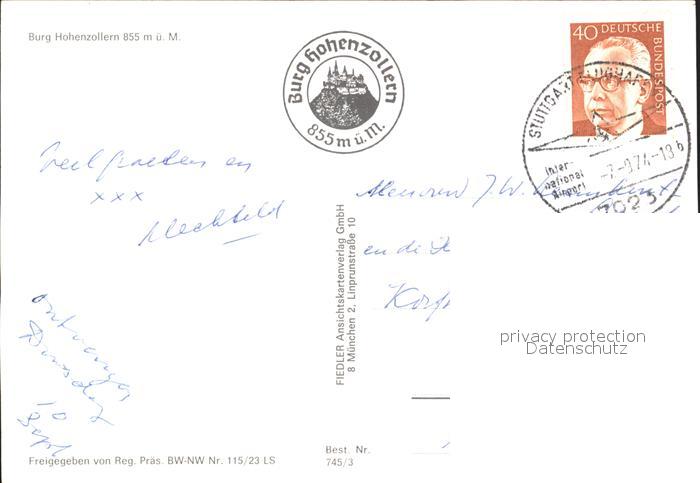 Burg Hohenzollern 855 m ü. M.
Burg Hohenzollern
855 m ü. M.
40 DEUTSCHE BUNDESPOST
STUTTGART FLUGHAFEN
Inter-
national
Airport
-7-9.74-13
7023
xxx
Mechteld
en
J. W.
en de
FIEDLER Ansichtskartenverlag GmbH
8 München 2, Linprunstraße 10
ontvangen
Dinsdag
10
Sept
privacy protection
Datenschutz
Freigegeben von Reg. Präs. BW-NW Nr. 115/23 LS
Best. Nr.
745/3